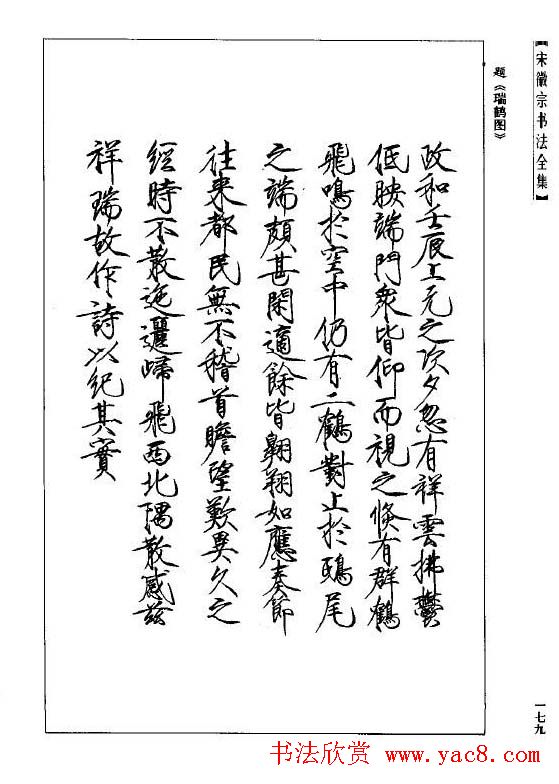 【宋徽宗书法全集】
题《瑞鹤图》
政和壬辰上元之次夕忽有祥雲拂鬱
低映端門衆皆仰而視之倏有群鶴
飛鳴於空中仍有二鶴對止於鴟尾
之端頗甚閑適餘皆翱翔如應奏節
往来都民無不稽首瞻望歎異久之
經時不散迤邐歸飛西北隅散感兹
祥瑞故作詩以紀其實
一七九
书法欣赏 www.yac8.com